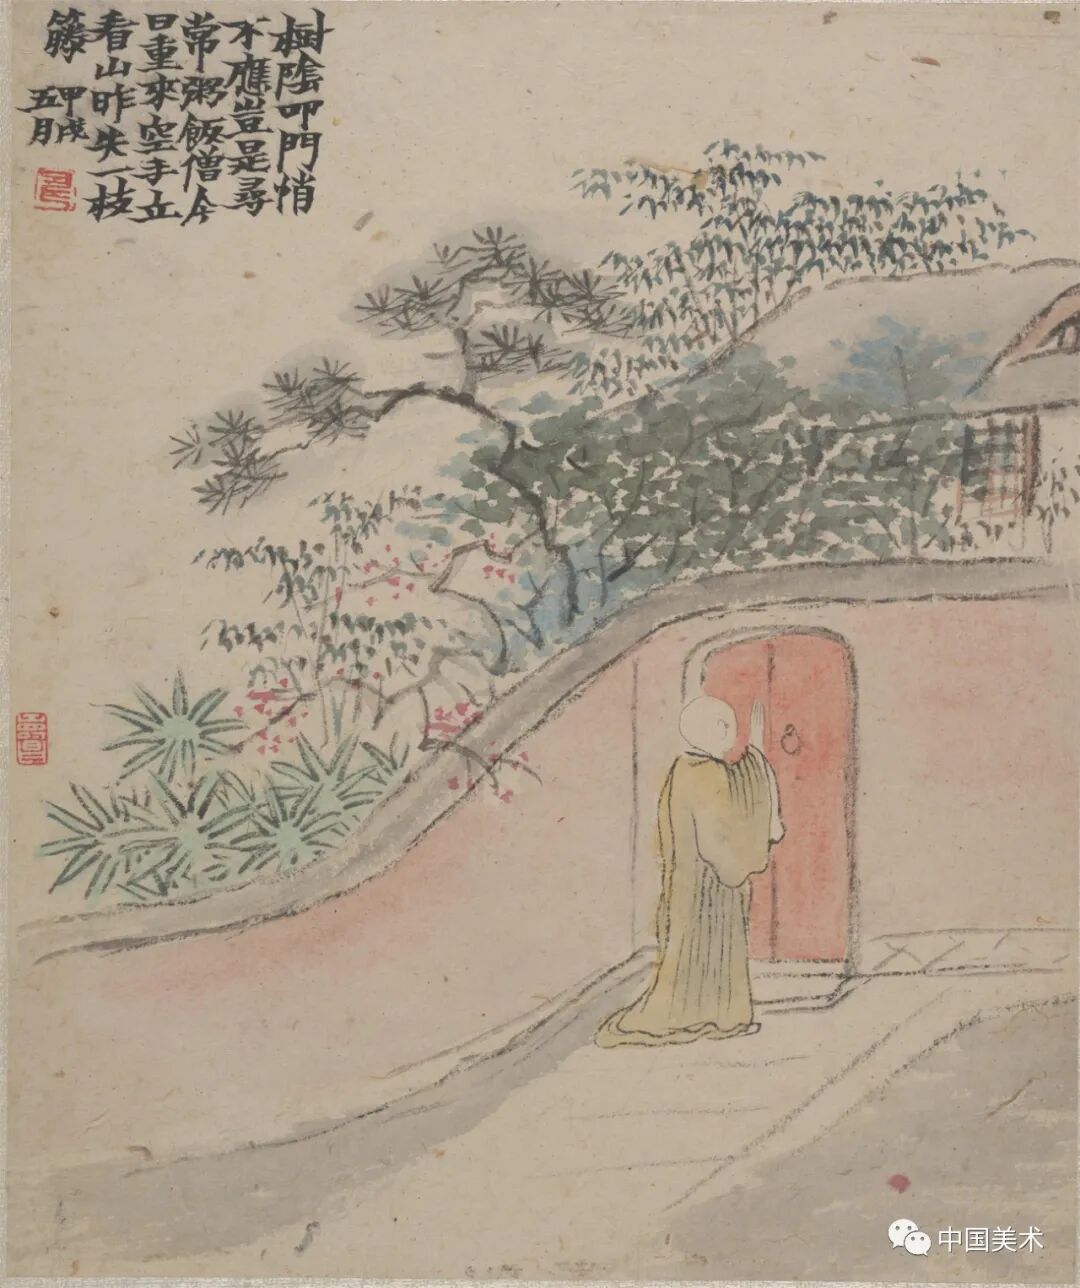 樹陰叩門悄
不應豈是尋
常粥飯僧今
日重來空手立
看山昨失一枝
籐 甲戌
五月
中国美术